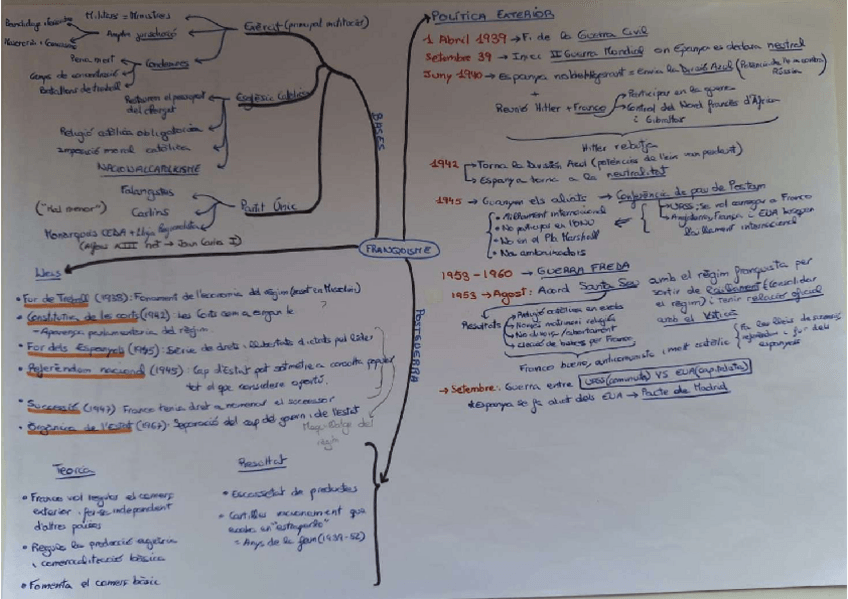 Militars = Ministres
Exèrcit (principal institució)
Amplia jurisdicció
Pena mort
Condemnes
Camps de concentració
Batallons de treball
Església Catòlica
Religió catòlica obligatòria
Imposició moral catòlica
NACIONALCATOLICISME
Falangistes
("Mal menor")
Carlins
Partit Únic
Monàrquics CEDA + Lliga Regionalista
(Alfons XIII nét → Joan Carles I)
BASES
FRANQUISME
POLÍTICA EXTERIOR
1 Abril 1939 → Fi de la Guerra Civil
Setembre 39 → Inici II Guerra Mundial on Espanya es declara neutral
Juny 1940 → Espanya no bel·ligerant = Envia la Divisió Azul
+
Reunió Hitler + Franco
Participar en la guerra
Control del Nord francès d'Àfrica
i Gibraltar
Hitler rebutja
1942
Torna la División Azul (potències de l'eix van perdent)
Espanya torna a la neutralitat
1945 → Guanyen els aliats → Conferència de pau de Postdam
• Aïllament internacional
• No participa en l'ONU
• No en el Pla Marshall
• Nos ambaixadors
Anglaterra, França i EUA busquen
l'aïllament internacional
1953 - 1960 → GUERRA FREDA
1953 → Agost: Acord Santa Seu amb el règim franquista per
sortir de l'aïllament (consolidar
el règim) i tenir relació oficial
amb el Vaticà
Resultats
Religió catòlica en escola
Només matrimoni religiós
No divorci/abortament
Elecció de bisbes per Franco
Franco bueno, anticomunista i molt catòlic
→ Setembre: Guerra entre URSS (comunista) VS EUA (capitalista)
Espanya se fa aliat dels EUA → Pacte de Madrid
Lleis
• Fur de Treball (1938): Fonament de l'economia del règim
• Constitutiva de les corts (1942): Les Corts com a òrgan le
- Aparença parlamentària del règim
?
• For dels Espanyols (1945): Sèrie de drets i llibertats dictats pel líder
• Referèndum nacional (1945): Cap d'estat pot sotmetre a consulta popular
tot el que considere oportú.
• Successió (1947) Franco tenia dret a nomenar el successor
• Orgànica de l'Estat (1967): Separació del cap del govern i de l'estat
Maquillatge del
règim
POSTGUERRA
Teoria
• Franco vol regular el comerç
exterior i fer-se independent
d'altres països
• Regula la producció agrària
i comercialització bàsica
• Fomenta el comerç bàsic
Resultat
• Escassetat de productes
• Cartilles racionament que
acaba en "estraperlo"
= Anys de la fam (1939-52)